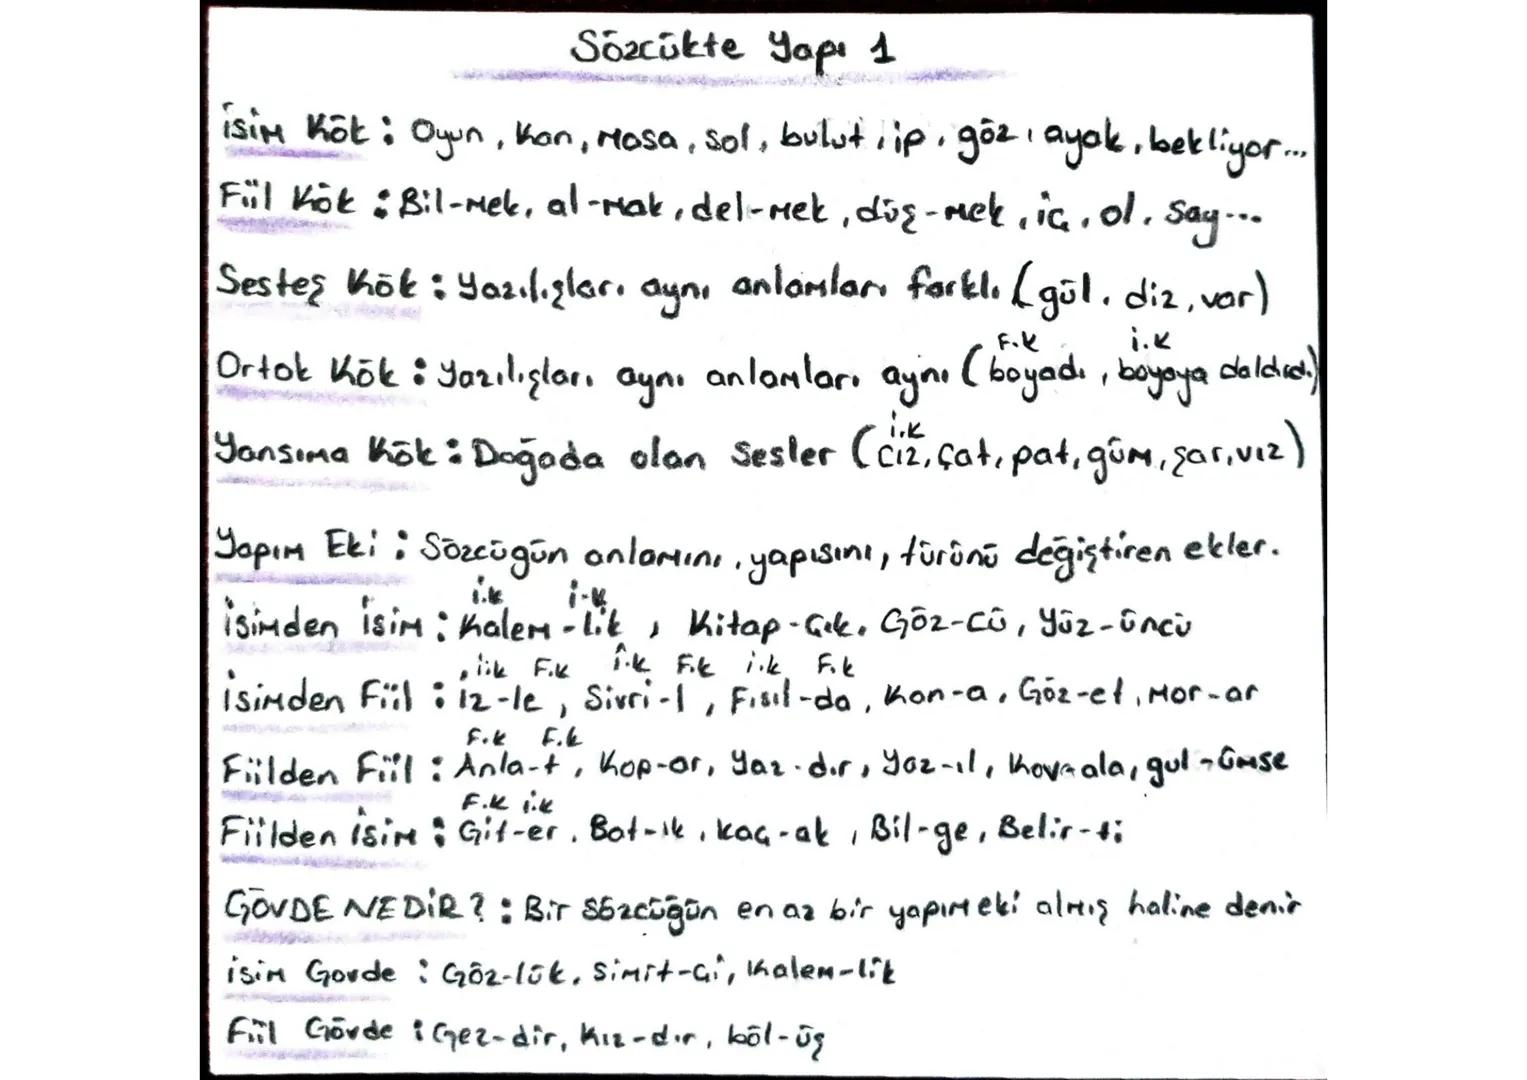 Sözcükte Yapı 1
İsim Kök : Oyun, kan, masa, sol, bulut, ip, göz, ayak, bekliyor...
Fiil Kök : Bil-mek, al-mak, del-mek, düş-mek, iç, ol, say...
Sesteş Kök : Yazılışları aynı anlamları farklı (gül, diz, var)
F.K İ.K
Ortak Kök : Yazılışları aynı anlamları aynı (boyadı, boyaya daldırdı.)
İ.K
Yansıma Kök : Doğada olan sesler (cız, çat, pat, güm, şar, vız)
Yapım Eki : Sözcüğün anlamını, yapısını, türünü değiştiren ekler.
İ.K İ-K
İsimden İsim : Kalem-lik, Kitap-çık, Göz-cü, Yüz-üncü
İ.k F.k İ.k F.k İ.k F.k
İsimden Fiil : İz-le, Sivri-l, Fısıl-da, Kan-a, Göz-et, Mor-ar
F.k F.k
Fiilden Fiil : Anla-t, Kop-ar, Yaz-dır, Yaz-ıl, Kov-ala, gul-ümse
F.K İ.K
Fiilden İsim : Git-er, Bat-ık, kaç-ak, Bil-ge, Belir-ti
GÖVDE NEDİR? : Bir sözcüğün en az bir yapım eki almış haline denir
İsim Govde : Göz-lük, Simit-çi, Kalem-lik
Fiil Gövde : Gez-dir, Kız-dır, böl-üş